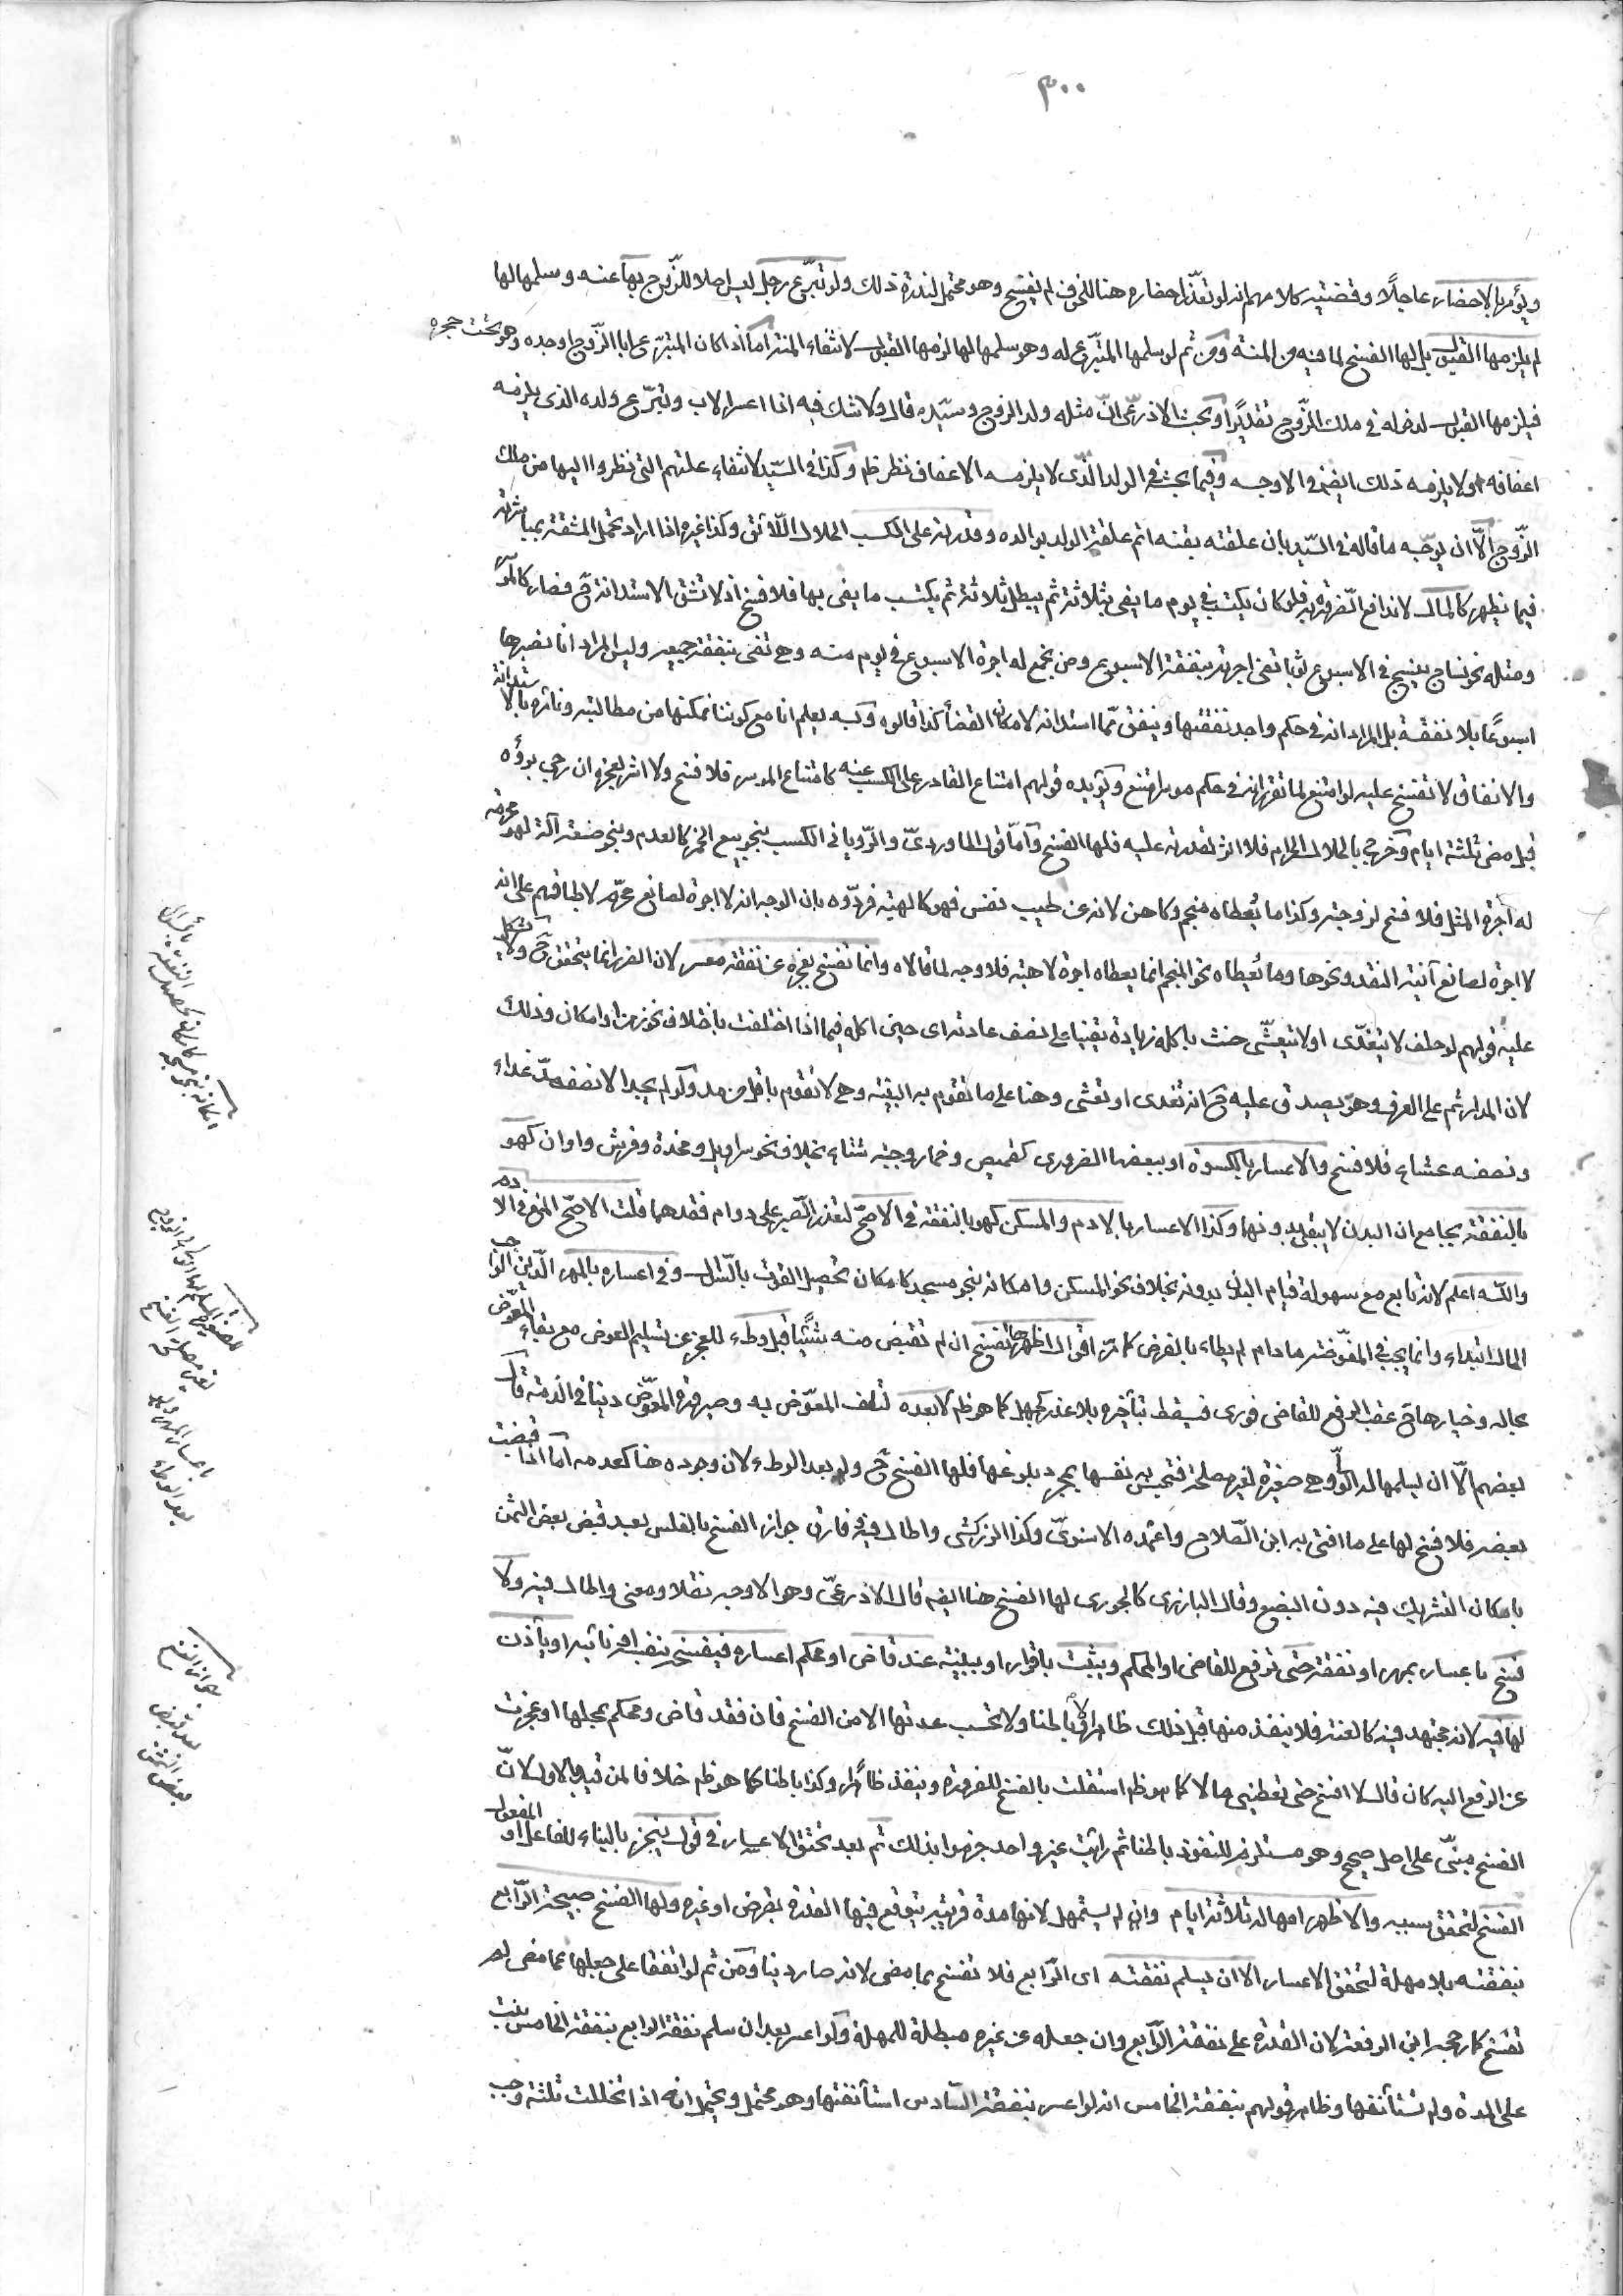 ٣٠٠
ويؤمر بالاحضار عاجلًا وقضية كلامهم انه لو تعذر احضاره هنا للخوف لم يفسخ وهو محتمل لندرة ذلك ولو تبرّع رجل ليس اصلا للزّوج بها عنه وسلمها لها
لم يلزمها القبول بل لها الفسخ لما فيه من المنة ومن ثم لو سلمها المتبرّع له وهو سلمها لها لزمها القبول لانتفاء المنة اما اذا كان المتبرّع ابا الزّوج او جده وهو تحت حجره
فيلزمها القبول لدخوله في ملك الزّوج تقديرًا وبحث الاذرعي انّ مثله ولد الزوج وسيّده قال ولا شك فيه اذا اعسر الاب وتبرّع ولده الذي يلزمه
اعفافه او لا يلزمه ذلك ايضا والاوجه وفيما بحثه في الولد الّذي لا يلزمه الاعفاف نظر ظ وكذا في السّيّد لانتفاء علتهم التي نظروا اليها من ملك
الزّوج الّا ان يوجّه ما قاله في السّيّد بان علقته بقنه اتم علقة الولد بوالده وقدرته على الكسب الحلال اللّائق وكذا غيره اذا اراد تحمل المشقة بمباشرته
فيما يظهر كالمال لاندفاع الضّرورة به فلو كان يكتسب في يوم ما يفي بثلاثة ثم يبطل ثلاثة ثم يكتسب ما يفي بها فلا فسخ اذ لا تشق الاستدانة ح فصار كالموسر
ومثله نحو نساج ينسج في الاسبوع ثوبا تفي اجرته بنفقة الاسبوع ومن تجمع له اجرة الاسبوع في يوم منه وهي تفي بنفقة جميعه وليس المراد انا نصبرها
اسبوعًا بلا نفقة بل المراد انه في حكم واجد نفقتها وينفق ممّا استدانه لامكان القضاء كذا قالوه وبه يعلم انا مع كوننا نمكنها من مطالبته ونامره بالاستدانة
والانفاق لا تفسخ عليه لو امتنع لما تقرر انه في حكم موسر امتنع ويؤيده قولهم امتناع القادر على الكسب عنه كامتناع الموسر فلا فسخ ولا اثر لعجزه ان رجي برؤه
قبل مضي ثلثة ايام وخرج بالحلال الحرام فلا اثر لقدرته عليه فلها الفسخ وامّا قول الماورديّ والرّوياني الكسب بنحو بيع الخمر كالعدم وبنحو صنعة آلة لهو محرمة
له اجرة المثل فلا فسخ لزوجته وكذا ما يُعطاه منجم وكاهن لانه عن طيب نفس فهو كالهبة فردّوه بان الوجه انه لا اجرة لصانع محرّم لاطباقهم على انه
لا اجرة لصانع آنية النقد ونحوها وما يُعطاه نحو المنجم انما يعطاه اجرة لا هبة فلا وجه لما قالاه وانما تفسخ بعجزه عن نفقة معسر لان الضرر انما يتحقق ح ولا يشكل
عليه قولهم لو حلف لا يتغدّى او لا يتعشّى حنث باكله زيادة يقينا على نصف عادته اي حين اكله فيما اذا اختلفت باختلاف نحو زمن او امكان وذلك
لان المدار ثم على العرف وهو يصدق عليه ح انه تغدى او تعشى وهنا على ما تقوم به البنية وهي لا تقوم باقل من مد ولو لم يجد الا نصف مدّ غداء
ونصفه عشاء فلا فسخ والاعسار بالكسوة او ببعضها الضروري كقميص وخمار وجبة شتاء بخلاف نحو سراويل ومخدة وفرش واوان كهو
بالنفقة بجامع ان البدن لا يبقى بدونها وكذا الاعسار بالادم والمسكن كهو بالنفقة في الاصح لتعذر الصّبر على دوام فقدهما قلت الاصحّ المنع في الادم
واللّه اعلم لانه تابع مع سهولة قيام البدن بدونه بخلاف نحو المسكن وامكانه بنحو مسجد كامكان تحصيل القوت بالسّؤال وفي اعساره بالمهر الّذي الواجب
الحال ابتداء وانما يجب في المفوّضة ما دام لم يطاء بالفرض كما مرّ اقوال اظهرها تفسخ ان لم تقبض منه شيئًا قبل وطء للعجز عن تسليم العوض مع بقاء المعوّض
بحاله وخيارها ح عقب الرفع للقاضي فوري فيسقط بتأخيره بلا عذر كجهل كما هو ظ لا بعده لتلف المعوّض به وصيرورة العوض دينا في الذمة قال
بعضهم الّا ان يسلمها له الولي وهي صغيرة لغير مصلحة فتحبس به نفسها بمجرد بلوغها فلها الفسخ ح ولو بعد الوطء لان وجوده هنا كعدمه اما اذا قبضت
بعضه فلا فسخ لها على ما افتى به ابن الصّلاح واعتمده الاسنويّ وكذا الزركشي واطال فيه وفارق جواز الفسخ بالفلس بعد قبض بعض الثمن
بامكان التشريك فيه دون البضع وقال البارزي كالجوري لها الفسخ هنا ايضا قال الاذرعيّ وهو الاوجه نقلا ومعنى واطال فيه ولا
فسخ باعسار بمهر او نفقة حتى ترفع للقاضي او المحكم ويثبت باقراره او ببينة عند قاض او محكم اعساره فيفسخه بنفسه او نائبه او يأذن
لها فيه لانه مجتهد فيه كالعنة فلا ينفذ منها قبل ذلك ظاهرا ولا باطنا ولا تحسب عدتها الا من الفسخ فان فقد قاض ومحكم بمحلها او عجزت
عن الرفع اليه كان قال لا افسخ حتى تعطيني مالا كما هو ظ استقلت بالفسخ للضرورة وينفذ ظاهرا وكذا باطنا كما هو ظ خلافا لمن قيد بالاول لانّ
الفسخ مبنيّ على اصل صحيح وهو مستلزم للنفوذ باطنا ثم رايت غير واحد جزموا بذلك ثم بعد تحقق الاعسار في قول ينجز بالبناء للفاعل او المفعول
الفسخ لتحقق سببه والاظهر امهاله ثلاثة ايام وان لم يستمهل لانها مدة قريبة يتوقع فيها القدرة بقرض او غيره ولها الفسخ صبيحة الرّابع
بنفقته بلا مهلة لتحقق الاعسار الا ان يسلم نفقته اي الرّابع فلا تفسخ بما مضى لانه صار دينا ومن ثم لو اتفقا على جعلها عما مضى لم
تفسخ كما رجحه ابن الرفعة لان القدرة على نفقة الرّابع وان جعله عن غيره مبطلة للمهلة ولو اعسر بعد ان سلم نفقة الرابع بنفقة الخامس بنت
على المدة ولم تستأنفها وظاهر قولهم بنفقة الخامس انه لو اعسر بنفقة السّادس استأنفتها وهو محتمل ويحتمل انه اذا تخللت ثلثة وجب
جواز الفسخ
بعد قبض
بعض الثمن